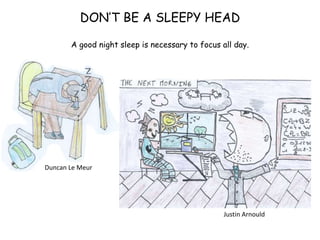 DON'T BE A SLEEPY HEAD
A good night sleep is necessary to focus all day.
Z
Z
Z
THE NEXT MORNING
Duncan Le Meur
Justin Arnould